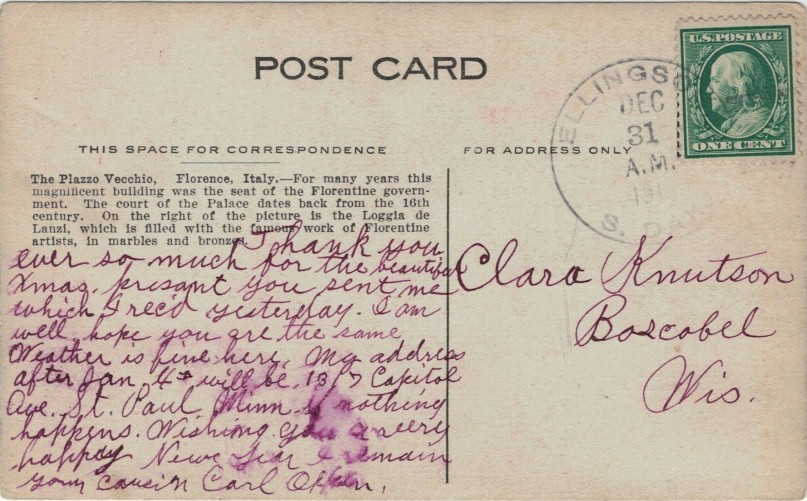 POST CARD
U.S. POSTAGE
ONE CENT
ELLINGS
DEC
31
A.M.
191
S. DAK
THIS SPACE FOR CORRESPONDENCE
FOR ADDRESS ONLY
The Plazzo Vecchio, Florence, Italy.—For many years this
magnificent building was the seat of the Florentine govern-
ment. The court of the Palace dates back from the 16th
century. On the right of the picture is the Loggia de
Lanzi, which is filled with the famous work of Florentine
artists, in marbles and bronzes.
Thank you
ever so much for the beautiful
Xmas. presant you sent me
which I rec'd yesterday. I am
well, hope you are the same
Weather is fine here. My address
after Jan. 4th will be 1317 Capitol
Ave. St. Paul, Minn if nothing
happens. Wishing you a very
happy New Year I remain
your cousin Carl
Clara Knutson
Boscobel
Wis.